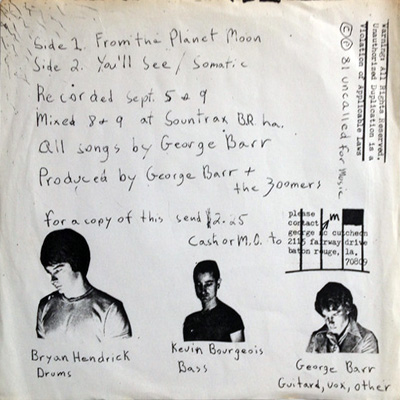 Side 1. From the Planet Moon
Side 2. You'll See / Somatic
Recorded Sept. 5 & 9
Mixed 8 & 9 at Sountrax B.R. ha.
All songs by George Barr
Produced by George Barr +
the Zoomers
for a copy of this send $2.25
Cash or M.O. to
please
contact
george mc cutcheon
2115 fairway drive
baton rouge, la.
70809
Bryan Hendrick
Drums
Kevin Bourgeois
Bass
George Barr
Guitard, vox, other
© ℗ 81 uncalled for Music
Warning: All Rights Reserved.
Unauthorized Duplication is a
Violation of Applicable Laws